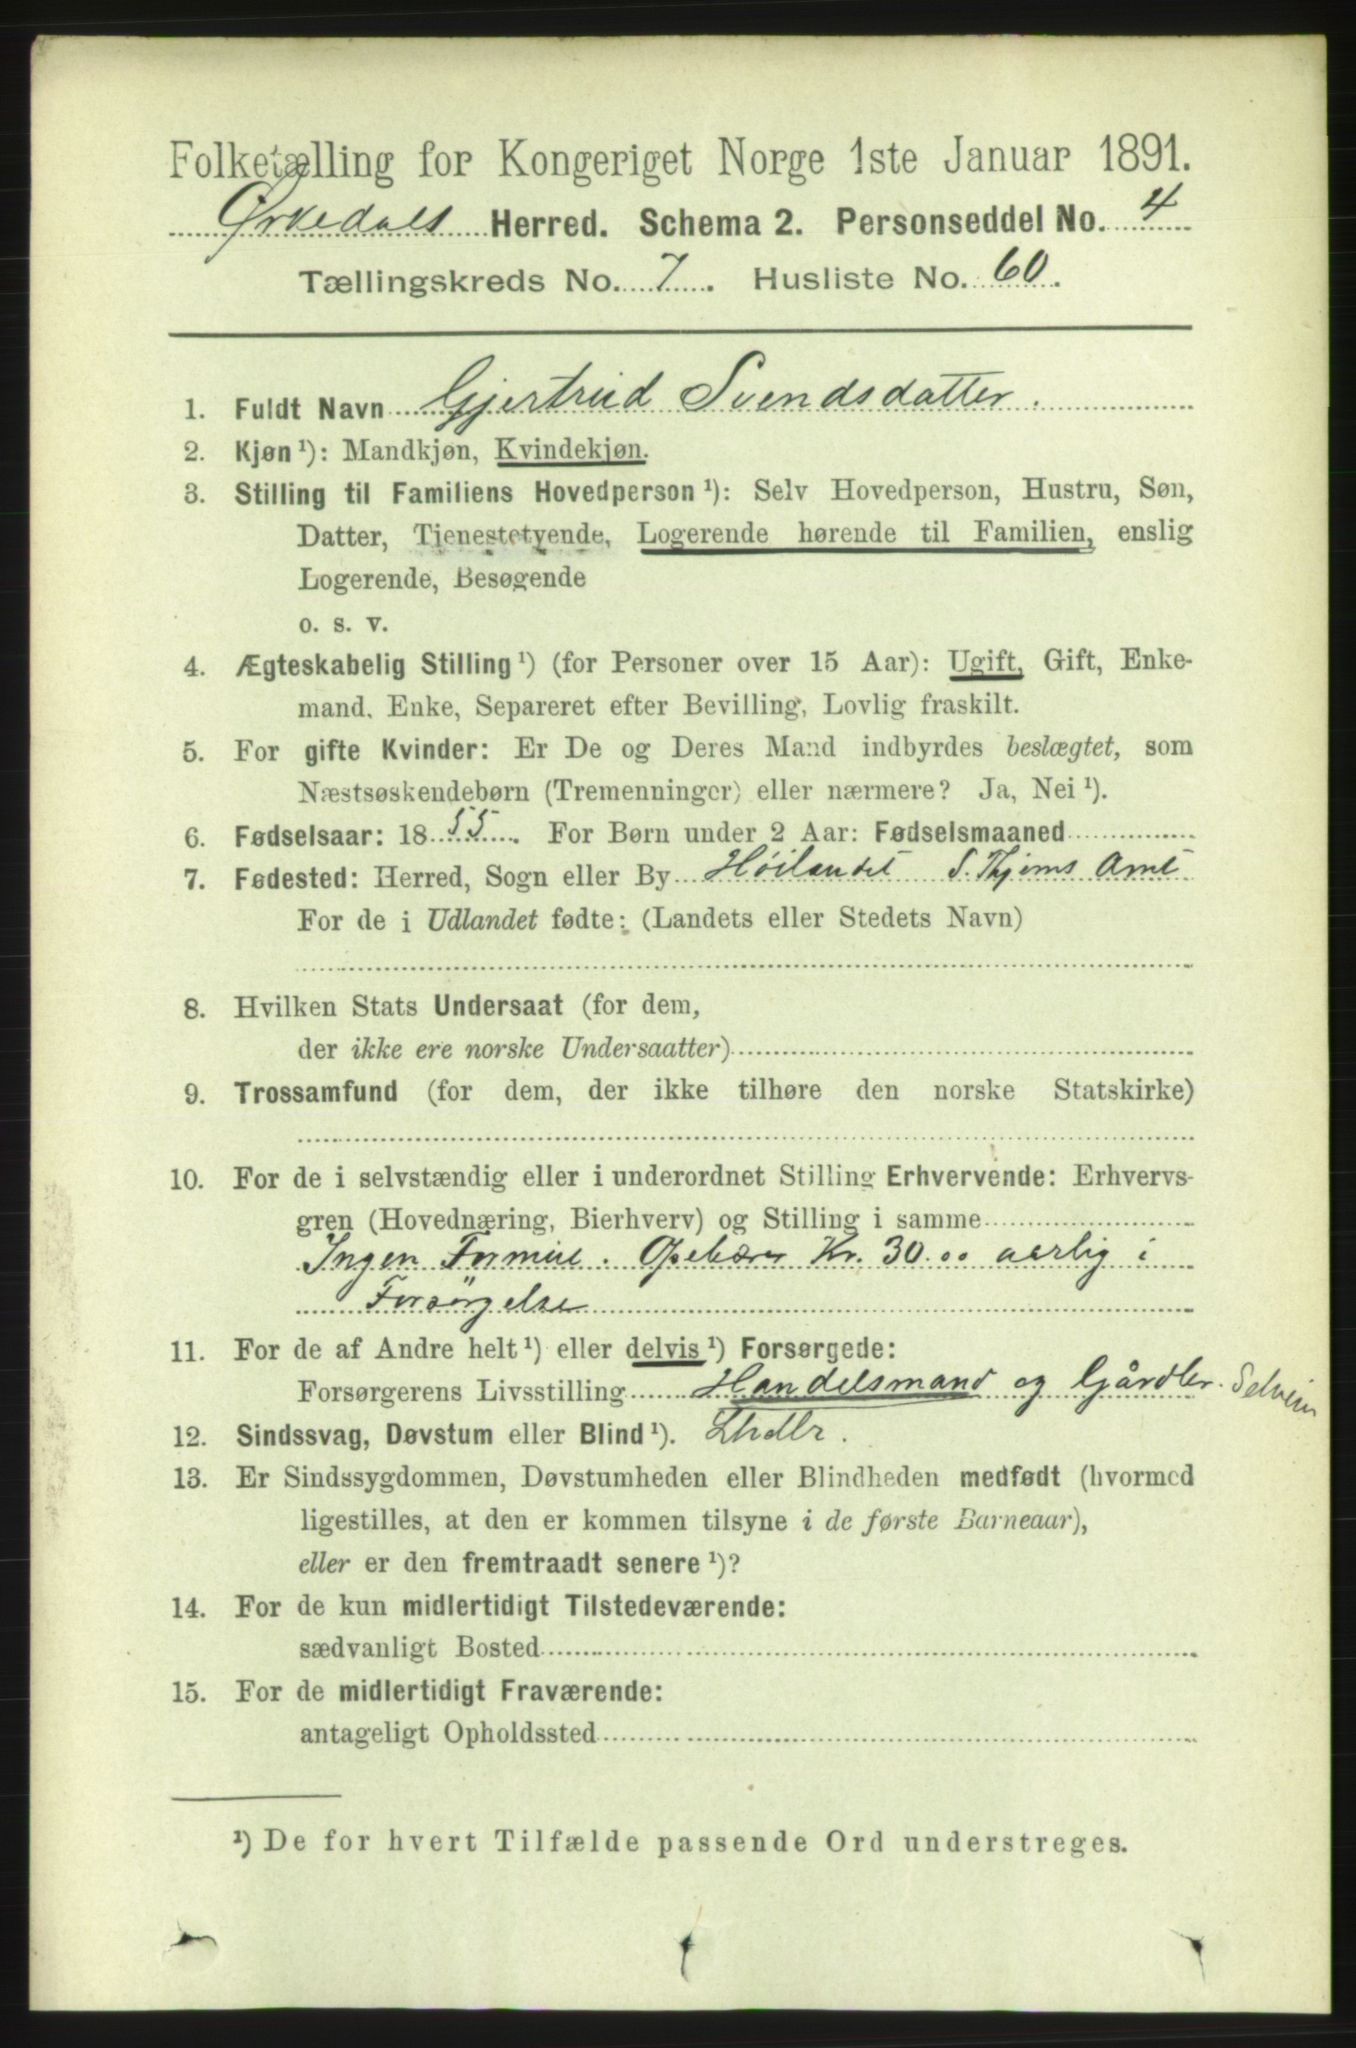 Folketælling for Kongeriget Norge 1ste Januar 1891.
Ørkedals Herred. Schema 2. Personseddel No. 4
Tællingskreds No. 7. Husliste No. 60.
1. Fuldt Navn Gjertrud Svendsdatter.
2. Kjøn ¹): Mandkjøn, Kvindekjøn.
3. Stilling til Familiens Hovedperson ¹): Selv Hovedperson, Hustru, Søn,
Datter, Tjenestetyende, Logerende hørende til Familien, enslig
Logerende, Besøgende
o. s. v.
4. Ægteskabelig Stilling ¹) (for Personer over 15 Aar): Ugift, Gift, Enke-
mand, Enke, Separeret efter Bevilling, Lovlig fraskilt.
5. For gifte Kvinder: Er De og Deres Mand indbyrdes beslægtet, som
Næstsøskendebørn (Tremenninger) eller nærmere? Ja, Nei ¹).
6. Fødselsaar: 1855. For Børn under 2 Aar: Fødselsmaaned
7. Fødested: Herred, Sogn eller By Høilandet S. Thjems Amt
For de i Udlandet fødte: (Landets eller Stedets Navn)
8. Hvilken Stats Undersaat (for dem,
der ikke ere norske Undersaatter)
9. Trossamfund (for dem, der ikke tilhøre den norske Statskirke)
10. For de i selvstændig eller i underordnet Stilling Erhvervende: Erhvervs-
gren (Hovednæring, Bierhverv) og Stilling i samme
Ingen Formue. Kr. 30.00 aarlig i
Forsørgelse
11. For de af Andre helt ¹) eller delvis ¹) Forsørgede:
Forsørgerens Livsstilling Handelsmand og Gårdbr. Selveier
12. Sindssvag, Døvstum eller Blind ¹).
13. Er Sindssygdommen, Døvstumheden eller Blindheden medfødt (hvormed
ligestilles, at den er kommen tilsyne i de første Barneaar),
eller er den fremtraadt senere ¹)?
14. For de kun midlertidigt Tilstedeværende:
sædvanligt Bosted
15. For de midlertidigt Fraværende:
antageligt Opholdssted
¹) De for hvert Tilfælde passende Ord understreges.